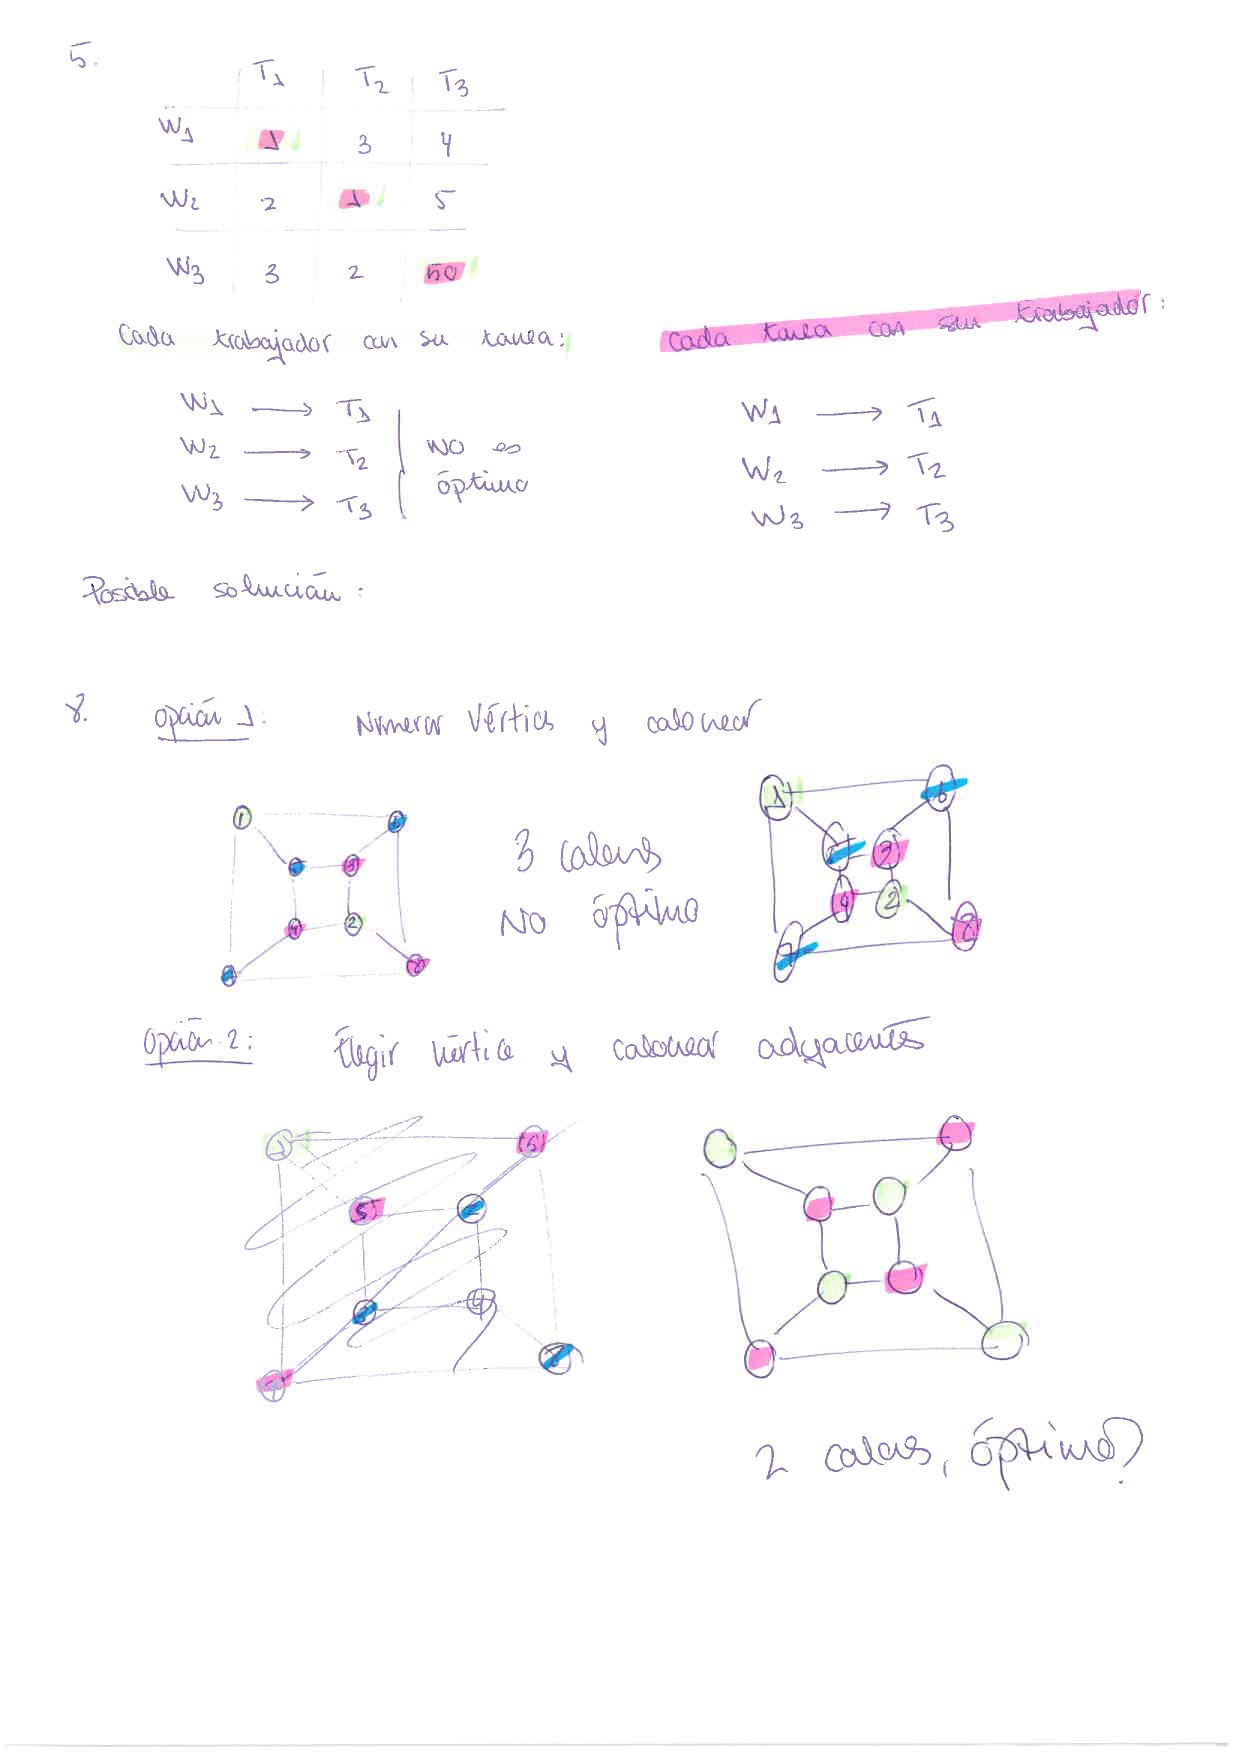 5.
T1 T2 T3
W1 1 3 4
W2 2 1 5
W3 3 2 50
Cada trabajador con su tarea:
Cada tarea con su trabajador:
W1 → T1
W2 → T2
W3 → T3
No es
óptimo
W1 → T1
W2 → T2
W3 → T3
Posible solución:
8. Opción 1: Numerar vértices y colorear
1 6
5 3
4 2
7 8
3 colores
No óptimo
1 6
5 3
4 2
7 8
Opción 2: Elegir vértice y colorear adyacentes
1 6
5 2
3 4
7 8
2 colores, óptimo?